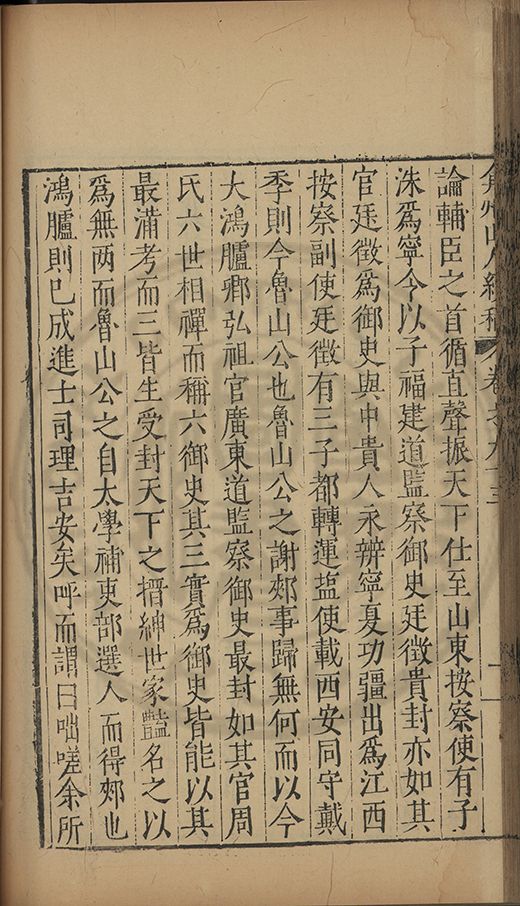 弇州山人續稿 卷之九十三
論輔臣之首循直聲振天下仕至山東按察使有子
洙爲寧令以子福建道監察御史廷徵貴封亦如其
官廷徵爲御史與中貴人永辦寧夏功疆出爲江西
按察副使廷徵有三子都轉運盐使載西安同守戴
季則今魯山公也魯山公之謝郟事歸無何而以今
大鴻臚卿弘祖官廣東道監察御史最封如其官周
氏六世相禪而稱六御史其三實爲御史皆能以其
最滿考而三皆生受封天下之搢紳世家豔名之以
爲無两而魯山公之自太學補吏部選人而得郟也
鴻臚則已成進士司理吉安矣呼而謂曰咄嗟余所